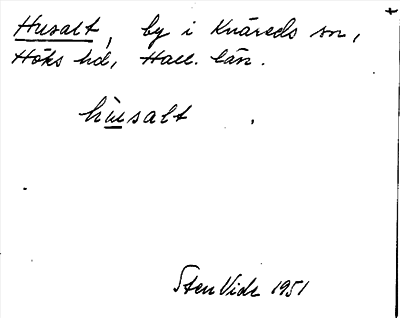 Husalt, by i Knäreds sn,
Höks hd, Hall. län.
hùsalt .
Sten Vide 1951